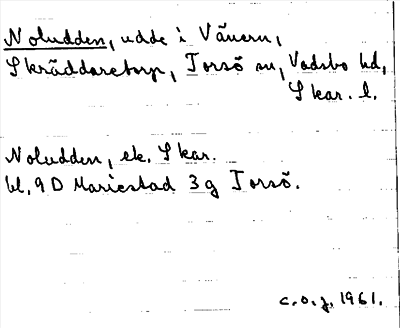 Noludden, udde i Vänern,
Skräddaretorp, Torsö sn, Vadsbo hd,
Skar. l.
Noludden, ek. Skar.
bl. 9 D Mariestad 3 g Torsö.
c.o.j. 1961.